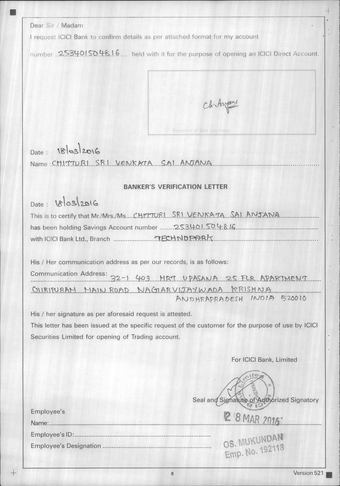 Dear Sir / Madam
I request ICICI Bank to confirm details as per attached format for my account
number 253401504816 held with it for the purpose of opening an ICICI Direct Account.
Ch Anjana
Date : 18/03/2016
Name CHITTURI SRI VENKATA SAI ANJANA
BANKER'S VERIFICATION LETTER
Date : 18/03/2016
This is to certify that Mr./Mrs./Ms. CHITTURI SRI VENKATA SAI ANJANA
has been holding Savings Account number 253401504816
with ICICI Bank Ltd., Branch TECHNOPARK
His / Her communication address as per our records, is as follows:
Communication Address: 32-1 403 MRT UPASANA 25 FLR APARTMENT
MAIN ROAD KRISHNA
ANDHRAPRADESH INDIA 520010
His / her signature as per aforesaid request is attested.
This letter has been issued at the specific request of the customer for the purpose of use by ICICI
Securities Limited for opening of Trading account.
For ICICI Bank, Limited
Limited
Seal and Signature of Authorized Signatory
Employee's
Name:
28 MAR 2016
Employee's ID:
Employee's Designation
OS. MUKUNDAN
Emp. No. 192118
8
Version 521